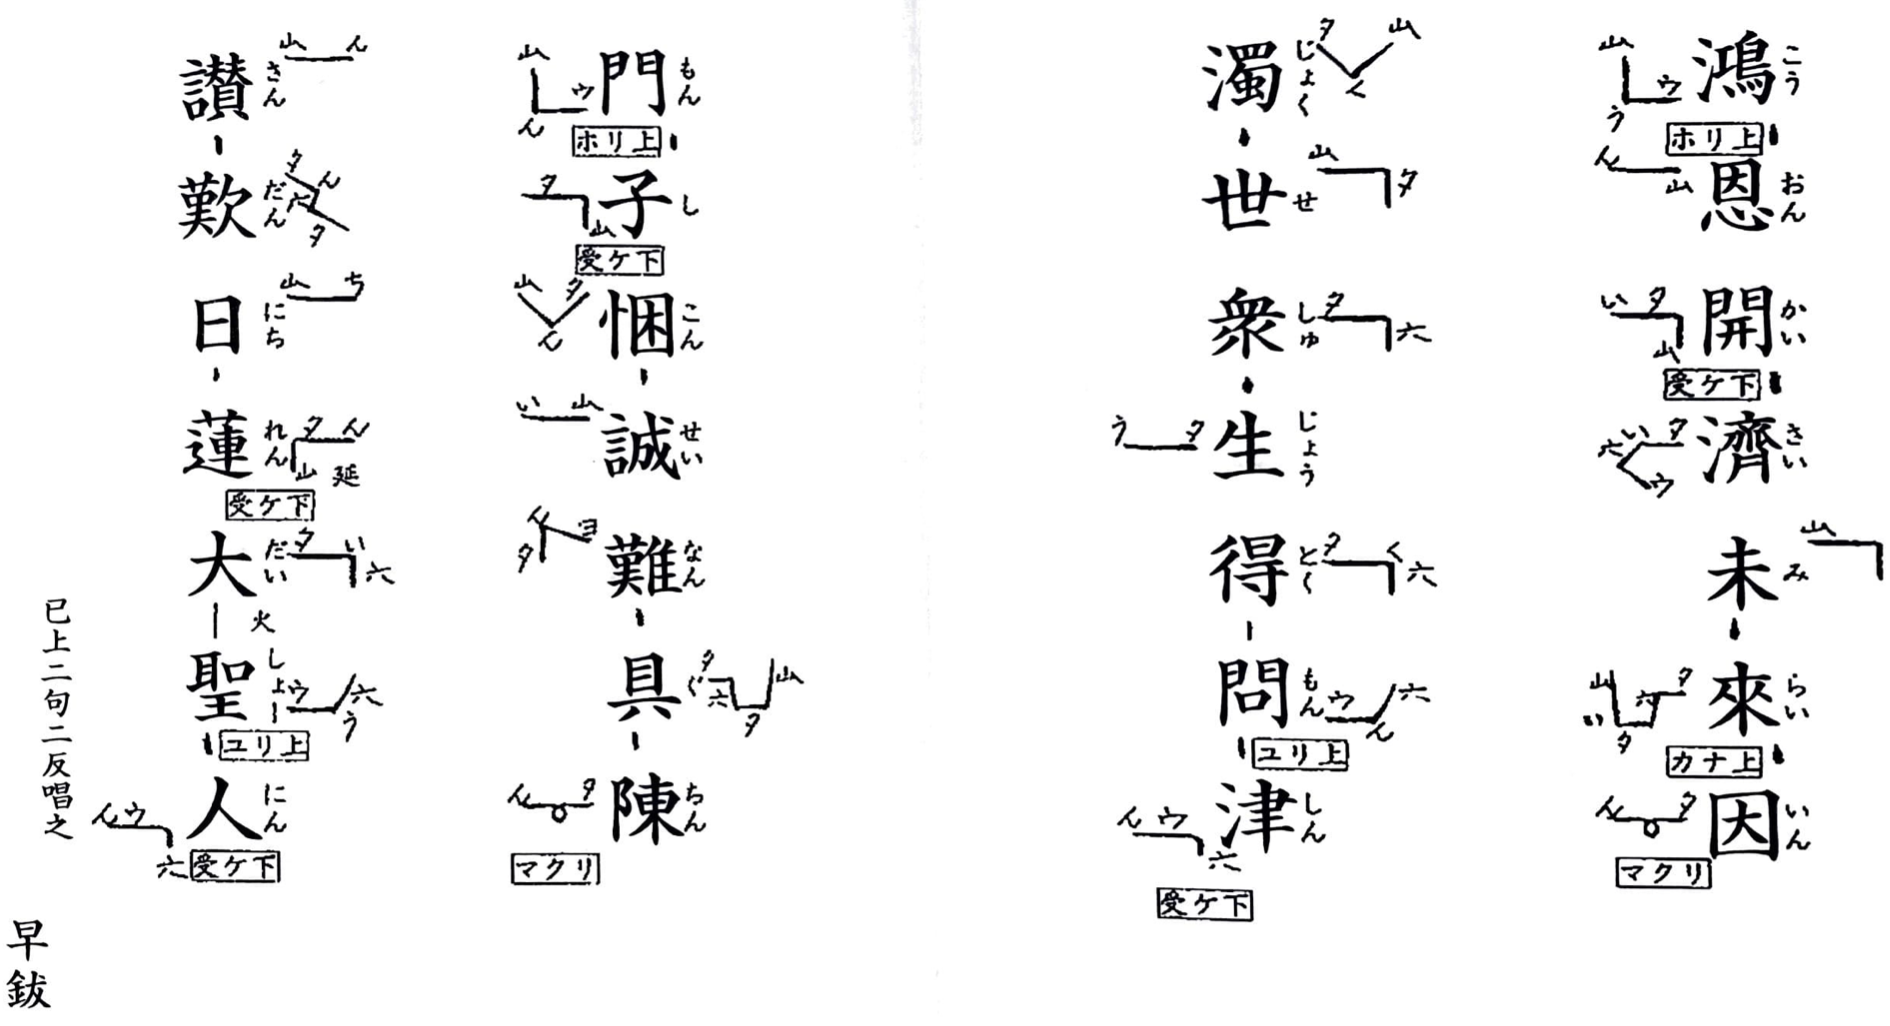 鴻恩開濟未來因
こう おん かい さい み らい いん
山 ウ う
ホリ上
ん 山
い タ 山
受ケ下
い タ 六 ウ
山
山 タ 六 タ い
カナ上
ん タ
マクリ
濁世衆生得問津
じょく せ しゅ じょう とく もん しん
タ 山 く
山 タ
タ 六
う タ
タ く 六
ウ 六 ん
ユリ上
ん ウ 六
受ケ下
門子悃誠難具陳
もん し こん せい なん ぐ ちん
山 ウ ん
ホリ上
タ 山
受ケ下
山 タ ん
い 山
ん ヨ タ
タ 六 タ 山
ん タ
マクリ
讃歎日蓮大聖人
さん だん にち れん だい しょー にん
山 ん
タ ん 六 タ
山 ち
タ ん 山 延
受ケ下
タ い 六
火
ウ 六 う
ユリ上
ん ウ 六
受ケ下
已上二句二反唱之
早鈸